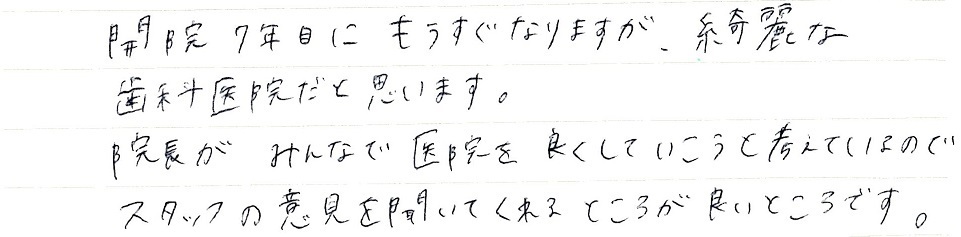 開院7年目に もうすぐなりますが、綺麗な
歯科医院だと思います。
院長が みんなで 医院を 良くしていこうと考えているので
スタッフの意見を聞いてくれるところが良いところです。